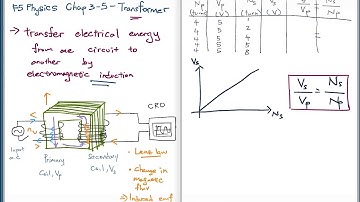 F5 Physics Chap 3-5 - Transformer
→ transfer electrical energy
from one circuit to
another by
electromagnetic induction
CRO
Input
a.c
Primary
Coil, Vp
Secondary
Coil, Vs
• Lenz law
• Change in
magnetic
flux
→ Induced emf
Np Vp Ns Vs
(turn) (V) (turn) (V)
4 5 1
4 5 2
4 5 4
4 5 5
4 5 8
=
Vs
Ns
Vs/Vp = Ns/Np